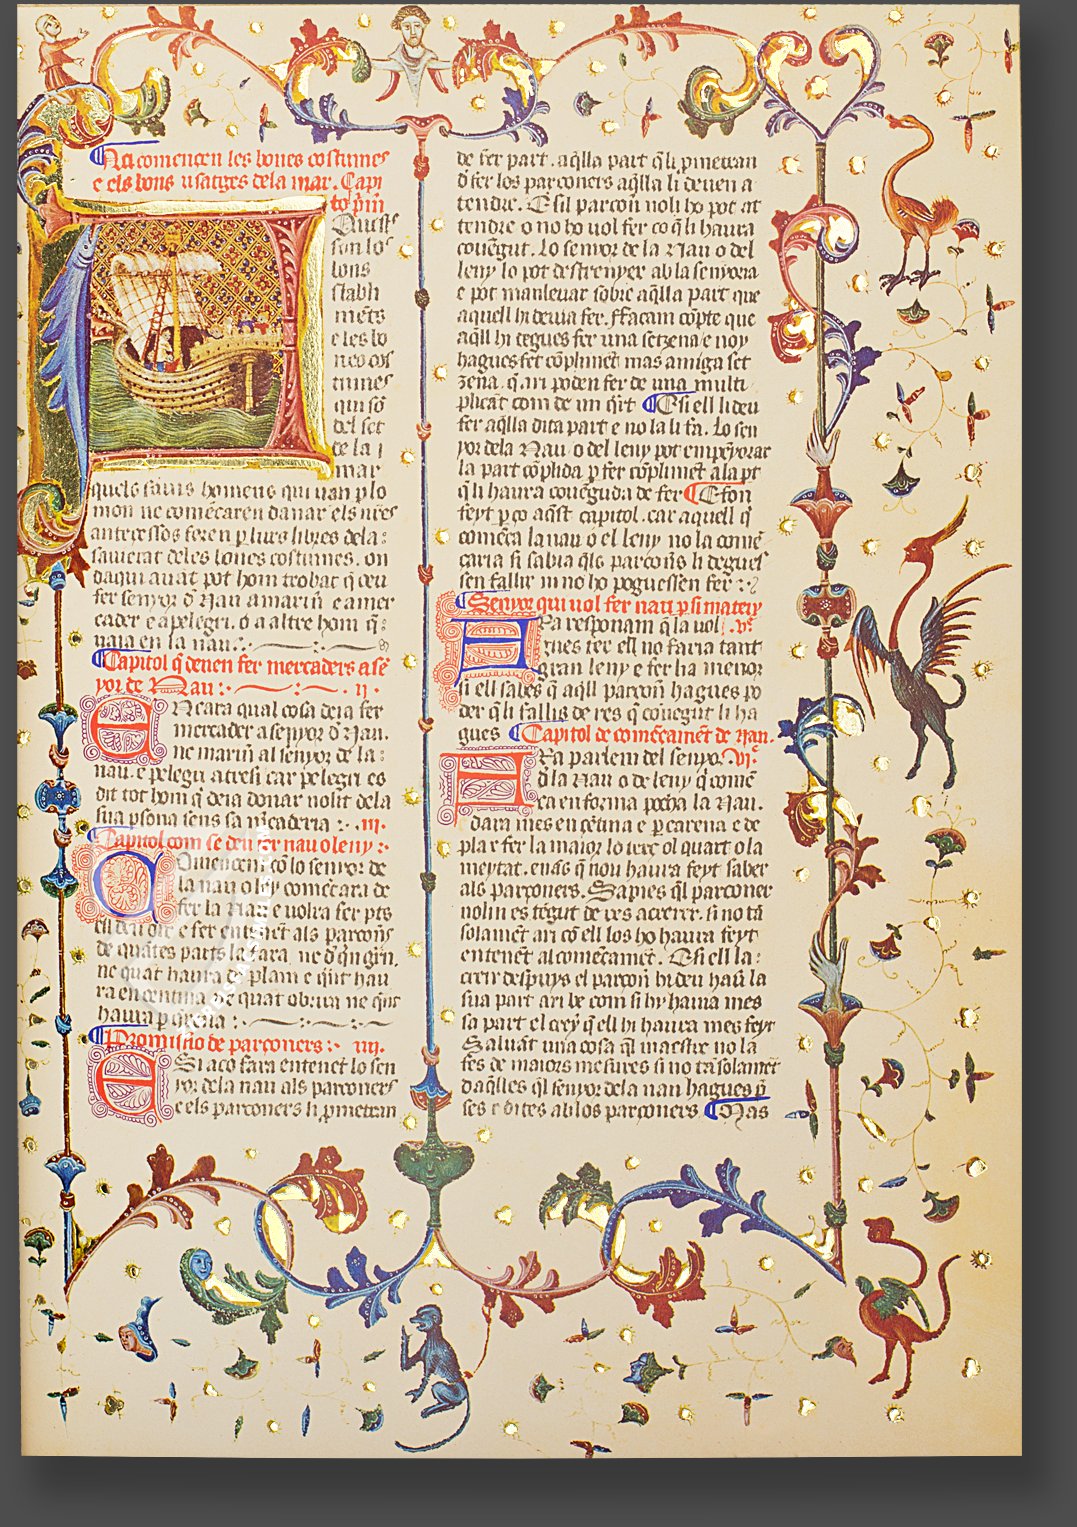 Aci comencen les bones costumes
e els bons usatges dela mar. Capi
tol prim
Aquests
son los
bons
stabli
mets
e les bo
nes cos
tumes
qui só
del fet
de la
mar
quels savis homens qui van p lo
mon ne comēcaren danar els nr̄es
antecessos feren p lurs libres dela
savieat deles bones costumes. on
daqui auāt pot hom trobar q̄ deu
fer senyor d nau a marin̄ e a mer
cader e a pelegri. o a altre hom q̄
vaia en la nau.
Capitol q̄ deuen fer mercaders a sē
yor de Nau: . ij .
Encara qual cosa deia fer
mercader a senyor d Nau.
ne marin̄ al senyor de la
nau. e pelegri atresi car pelegri es
dit tot hom q̄ deia donar nolit dela
sua psona sens sa m̄caderia : . iij.
Capitol com se deu fer nau o leny :
Comencem cō lo senyor de
la nau o leny comēcara de
fer la nau e volra fer pts
ell deu dir e fer entenēt als parcon̄s
de quātes parts la fara. ne d q̄n grā.
ne quāt haura de plan e q̄nt hau
ra en sentina. ne quāt obrira ne q̄nt
haura p carena :
Promissio de parconers : . iiij.
E Si aco fara entenēt lo sen
yor dela nau als parconers
e els parconers li pmetran
de fer part. aq̄lla part q̄ li pmetran
d fer los parconers aq̄lla li deuen a
tendre. E si l parcon̄ noli ho pot at
tendre o no ho vol fer co q̄ li haura
couēgut. Lo senyor de la Nau o del
leny lo pot destrenyer ab la senyoria
e pot manleuar sobre aq̄lla part que
aquell hi deuia fer. Ffacam cōpte que
aq̄ll hi degues fer una setzena e noy
hagues fet cōplimēt mas a miga set
zena. q̄ ari poden fer de una multi
plicāt com de un q̄rt E si ell li deu
fer aq̄lla dita part e no la li fa. Lo sen
yor dela Nau o del leny pot empenyorar
la part cōplida p fer cōplimēt a la pt
q̄ li haura couēguda de fer E fon
feyt p co aq̄st capitol. car aquell q̄
comēca la nau o el leny no la comē
caria si sabia q̄ls parcon̄s li degues
sen fallir ni no ho poguessen fer :
Senyor qui vol fer nau p si mateix
Era responam q̄ la vol . v.
gues fer ell no faria tant
gran leny e fer ha menor
si ell sabes q̄ aq̄ll parcon̄ hagues po
der q̄ li fallis de res q̄ couegut li ha
gues Capitol de comēcamēt de nau.
Era parlem del senyor . vi.
d la nau o de leny q̄ comē
cra en forma pocha la Nau.
dara mes en cētina e p carena e de
pla e fer la maior lo terc o l quart o la
meytat. enās q̄ non haura feyt saber
als parconers. Sapies q̄l parconer
nolin es tēgut de res acrexer. si no tā
solamēt ari cō ell los ho haura feyt
entenēt al comēcamēt. E si ell la
creix despuys el parcon̄ hi deu hau la
sua part ari be com si hy hauia mes
sa part el creix q̄ ell hi haura mes feyt
Saluāt una cosa q̄l maestre no la
fes de maiors mesures si no tā solamēt
daq̄lles q̄l senyor dela nau hagues p̄
ses e dites ab los parconers Mas